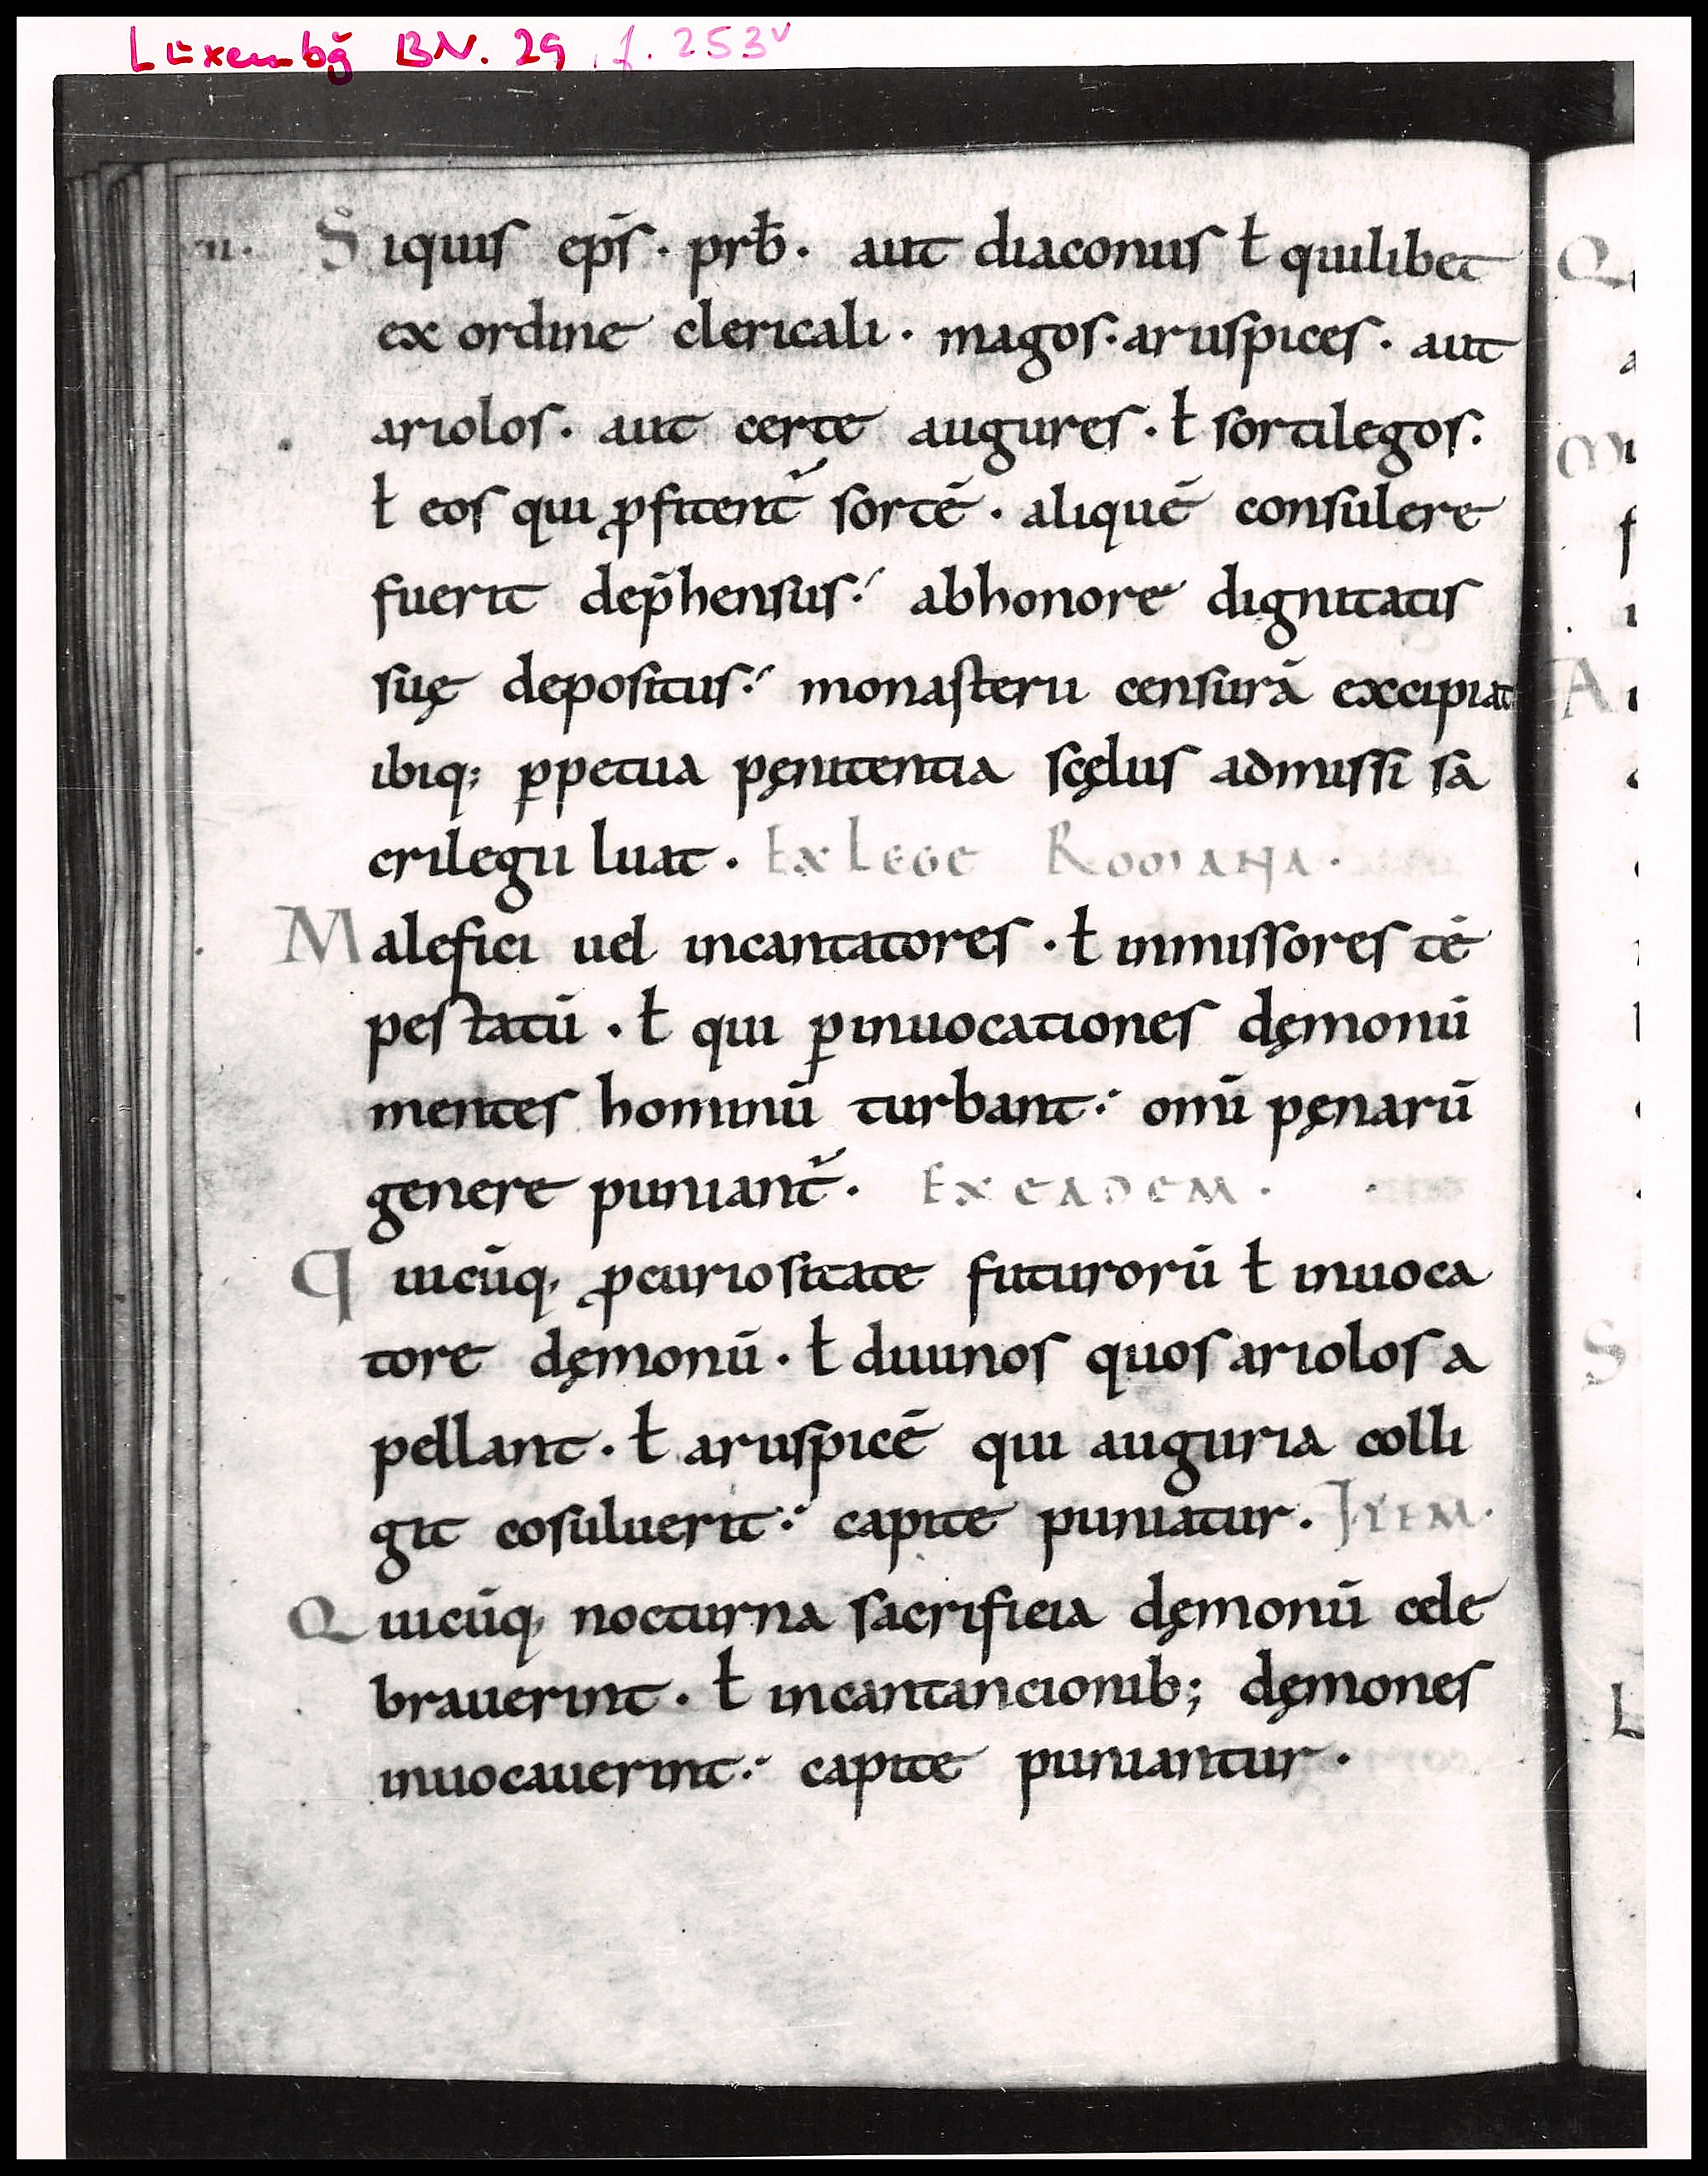 Luxembg BN. 29 f. 253v
II. Siquis ep̄s · prb̄ · aut diaconus ł quilibet
ex ordine clericali · magos · aruspices · aut
ariolos · aut certe augures · ł sortilegos ·
ł eos qui ꝓfitent̄ sortē · aliquē consulere
fuerit dep̄hensus · abhonore dignitatis
suę depositus · monasterii censurā excipiat
ibiq; ꝑpetua pęnitentia scęlus admissi sa
crilegii luat · Ex Lege Romana ·
Malefici uel incantatores · ł inmissores tē
pestatū · ł qui ꝑinuocationes dęmonū
mentes hominū turbant · omī pęnarū
genere puniant̄ · Ex eadem ·
Quicūq, ꝓcuriositate futurorū ł inuoca
tore dęmonū · ł diuinos quos ariolos a
pellant · ł aruspicē qui auguria colli
git cosuluerit · capite puniatur · Item ·
Quicūq, nocturna sacrificia dęmonū cele
brauerint · ł incantancionib; dęmones
inuocauerint · capite puniantur ·